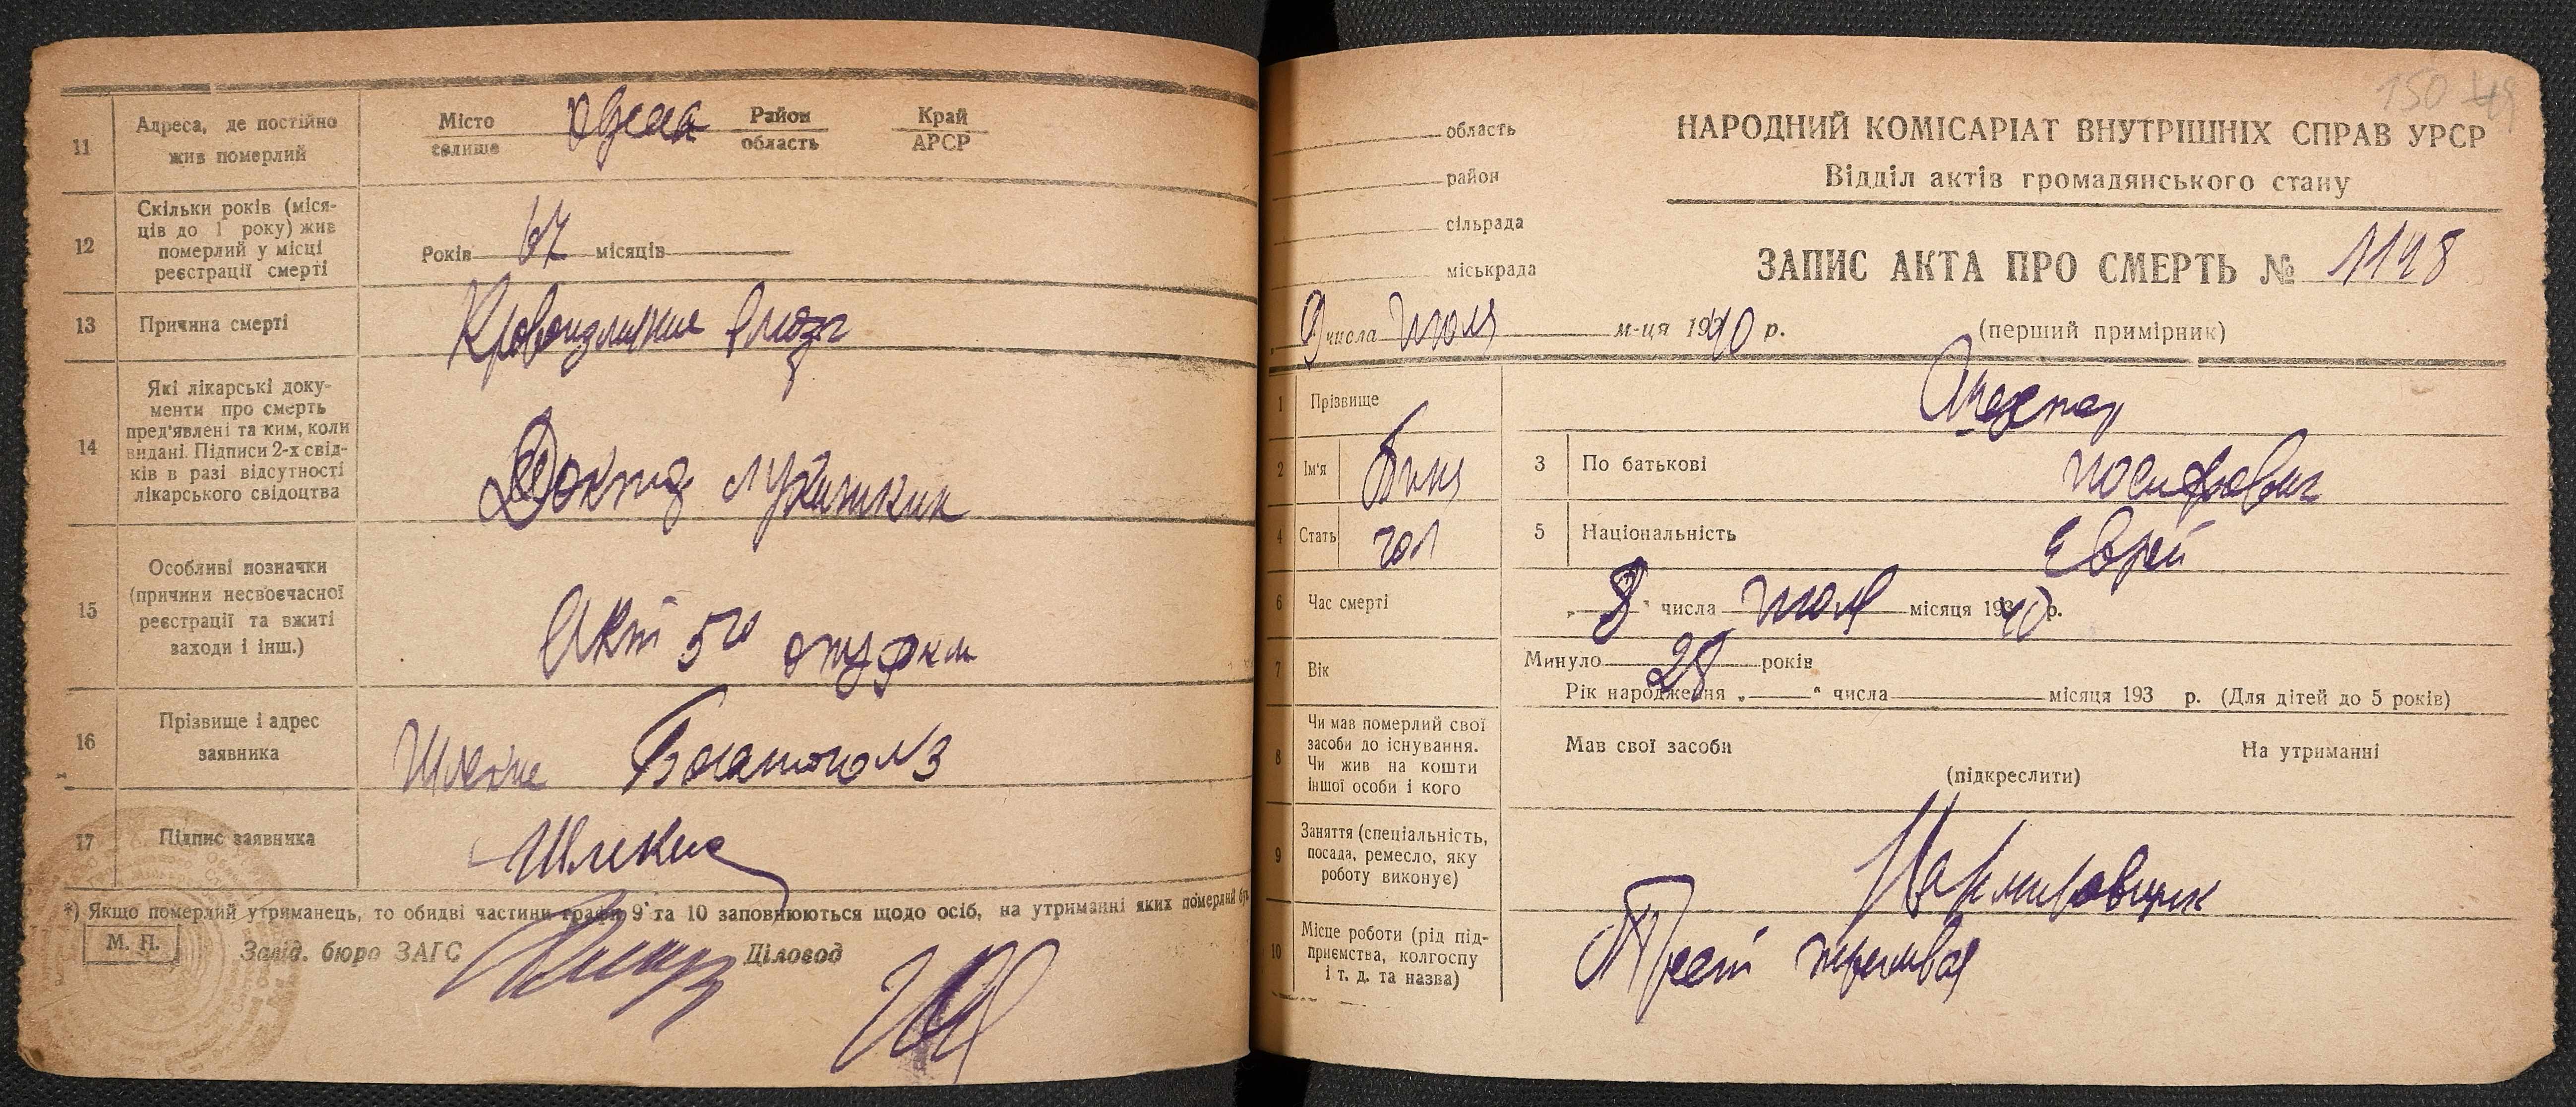 11 Адреса, де постійно
жив померлий
Місто
селище
Одеса
Район
область
Край
АРСР
12 Скільки років (міся-
ців до 1 року) жив
померлий у місці
реєстрації смерті
Років місяців
13 Причина смерті
Кровоизлияние в мозг
14 Які лікарські доку-
менти про смерть
пред'явлені та ким, коли
видані. Підписи 2-х свід-
ків в разі відсутності
лікарського свідоцтва
15 Особливі позначки
(причини несвоєчасної
реєстрації та вжиті
заходи і інш.)
Акт 5го
16 Прізвище і адрес
заявника
17 Підпис заявника
*) Якщо померлий утриманець, то обидві частини графи 9 та 10 заповнюються щодо осіб, на утриманні яких померлий був
М. П.
Завід. бюро ЗАГС
Діловод
область
район
сільрада
міськрада
9 числа июля м-ця 1940 р.
150
НАРОДНИЙ КОМІСАРІАТ ВНУТРІШНІХ СПРАВ УРСР
Відділ актів громадянського стану
ЗАПИС АКТА ПРО СМЕРТЬ № 1148
(перший примірник)
1 Прізвище
2 Ім'я
3 По батькові
Иосифович
4 Стать
чол
5 Національність
Еврей
6 Час смерті
„ 8 " числа июля місяця 1940 р.
7 Вік
Минуло 28 років
Рік народження „ " числа місяця 193 р. (Для дітей до 5 років)
8 Чи мав померлий свої
засоби до існування.
Чи жив на кошти
іншої особи і кого
Мав свої засоби
На утриманні
(підкреслити)
9 Заняття (спеціальність,
посада, ремесло, яку
роботу виконує)
Нармировщик
10 Місце роботи (рід під-
приємства, колгоспу
і т. д. та назва)
Трест